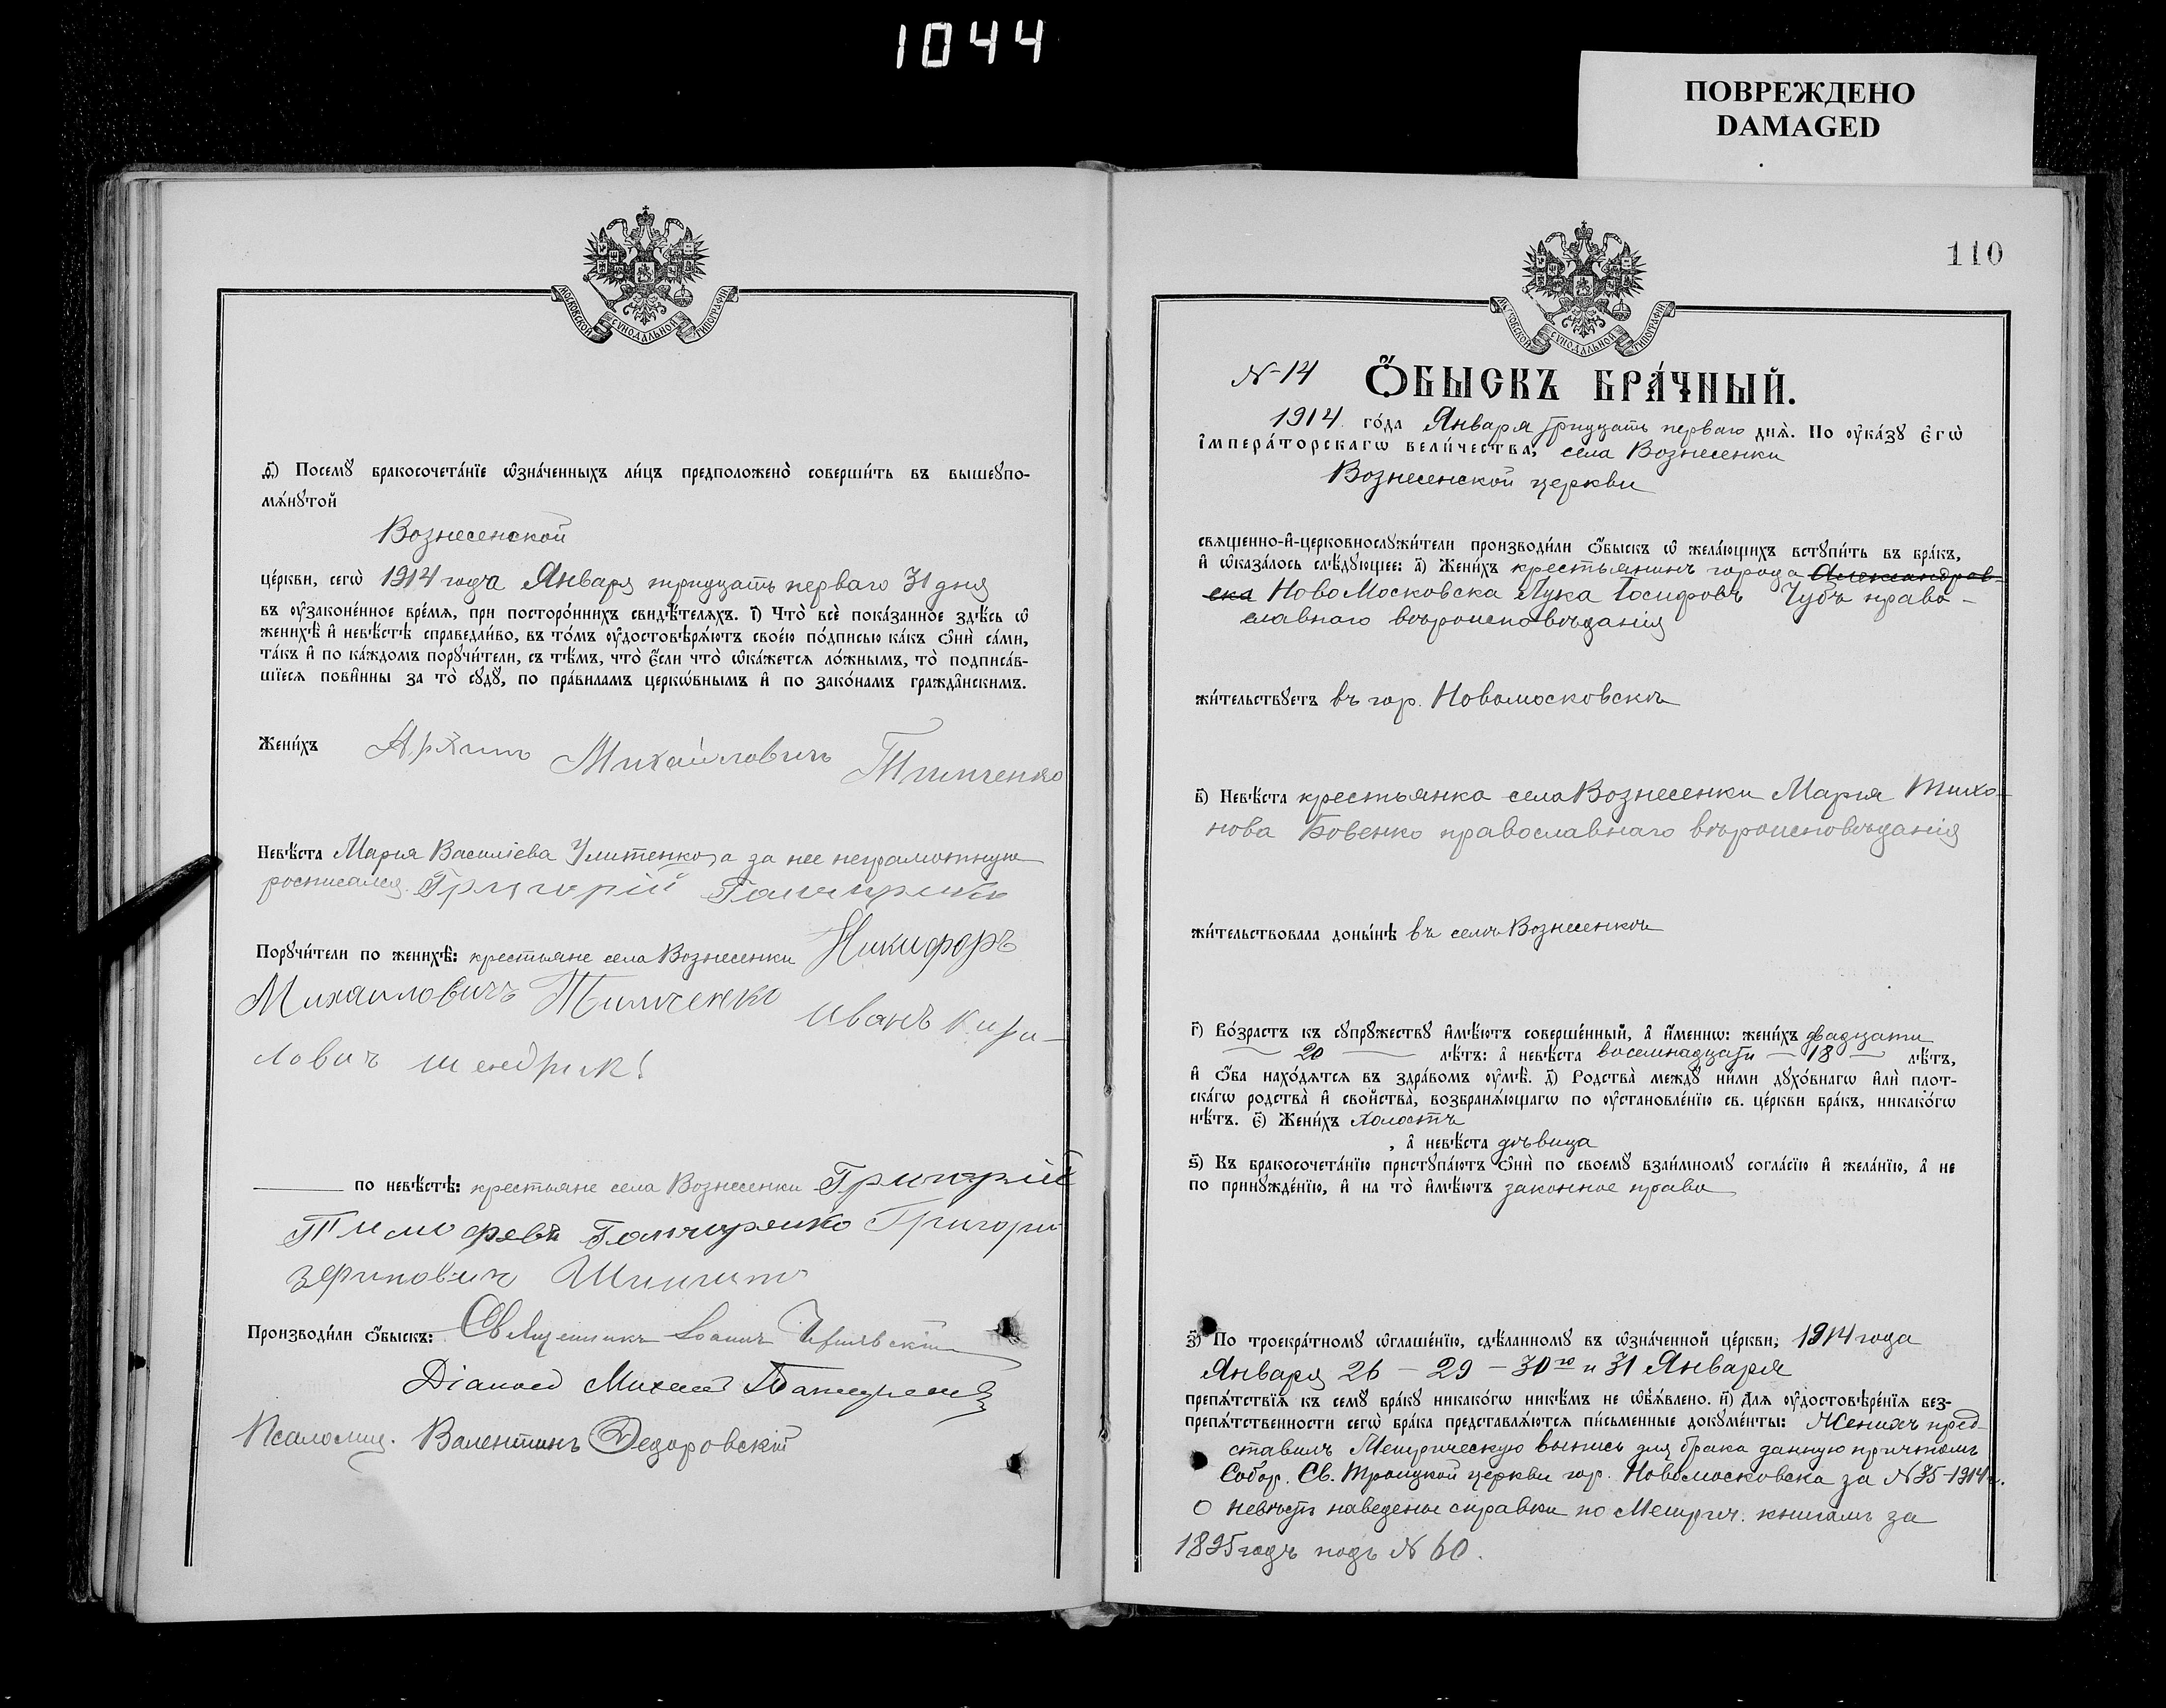 1044
ПОВРЕЖДЕНО
DAMAGED
МОСКОВСКОЙ СѴНОДАЛЬНОЙ ТИПОГРАФІИ
ѳ҃) Посемꙋ бракосочета́нїе ѡзна́ченныхъ ли́цъ предположено̀ соверши́ть въ вышеꙋпо-
мѧ́нꙋтой
Вознесенской
це́ркви, сегѡ̀ 1914 года Января тридцать перваго 31 дня
въ оу҆зако́ненное вре́мѧ, при посторо́ннихъ свидѣ́телѧхъ. і҃) Что̀ всѐ пока́занное здѣ́сь ѡ҆
женихѣ̀ и҆ невѣ́стѣ справедли́во, въ то́мъ оу҆достовѣрѧ́ютъ свое́ю по́дписью ка́къ ѻ҆нѝ са́ми,
та́къ и҆ по ка́ждомъ порꙋчи́тели, съ тѣ́мъ, что̀ є҆́сли что̀ ѡ҆ка́жетсѧ ло́жнымъ, то̀ подписа́в-
шїесѧ пови́нны за то̀ сꙋдꙋ̀, по пра́виламъ церко́внымъ и҆ по зако́намъ гражда́нскимъ.
Жени́хъ Архипъ Михайловичъ Тимченко
Невѣ́ста Марія Василіева Улитенко, а за нее неграмотную
росписался Григорій Гончаренко
Порꙋчи́тели по женихѣ̀: крестьяне села Вознесенки Никифоръ
Михаиловичъ Тимченко Иванъ Кири-
ловичъ Шендрик!
по невѣ́стѣ: крестьяне села Вознесенки Григорій
Тимофеевъ Гончаренко Григори
Производи́ли ѻ҆́быскъ: Священникъ Іоаннъ
Діаконъ Михаилъ
Псаломщ. Валентинъ Федоровскій
110
МОСКОВСКОЙ СѴНОДАЛЬНОЙ ТИПОГРАФІИ
N-14 Ѻ҆́БЫСКЪ БРА́ЧНЫЙ.
1914 го́да Января тридцать перваго днѧ̀. По оу҆ка́зꙋ є҆гѡ̀
і҆мпера́торскагѡ вели́чества, села Вознесенки
Вознесенской церкви
свѧщенно-и҆-церковнослꙋжи́тели производи́ли ѻ҆́быскъ ѡ҆ жела́ющихъ встꙋпи́ть въ бра́къ,
и҆ ѡ҆каза́лось слѣ́дꙋющее: а҃) Жени́хъ крестьянинъ города Александров-
ска НовоМосковска Лука Іосифовъ Чубъ право-
славнаго вѣроисповѣданія
жи́тельствꙋетъ въ гор. Новомосковскѣ
в҃) Невѣ́ста крестьянка села Вознесенки Марія Тихо-
нова Бовенко православнаго вѣроисповѣданія
жи́тельствовала доны́нѣ въ селѣ Вознесенкѣ
г҃) Во́зрастъ къ сꙋпрꙋ́жествꙋ и҆мѣ́ютъ соверше́нный, а҆ и҆́меннѡ: жени́хъ двадцати
20 лѣ́тъ: а҆ невѣ́ста восемнадцати - 18 - лѣ́тъ,
и҆ ѻ҆́ба нахо́дѧтсѧ въ здра́вомъ оу҆мѣ̀. д҃) Родства̀ междꙋ̀ ни́ми дꙋхо́внагѡ и҆лѝ плот-
ска́гѡ родства̀ и҆ сво́йства̀, возбранѧ́ющагѡ по оу҆становле́нїю св. це́ркви бра́къ, никако́гѡ
нѣ́тъ. є҃) Жени́хъ холостъ
, а҆ невѣ́ста дѣвица
ѕ҃) Къ бракосочета́нїю пристꙋпа́ютъ ѻ҆нѝ по своемꙋ̀ взаи́мномꙋ согла́сїю и҆ жела́нїю, а҆ не
по принꙋжде́нїю, и҆ на то̀ и҆мѣ́ютъ законное право
з҃) По троекра́тномꙋ ѡ҆глаше́нїю, сдѣ́ланномꙋ въ ѡ҆зна́ченной це́ркви, 1914 года
Января 26 - 29 - 30го и 31 Января
препѧ́тствїѧ къ семꙋ̀ бра́кꙋ никако́гѡ никѣ́мъ не ѡ҆б̾ѧ́влено. и҃) Длѧ оу҆достовѣре́нїѧ без-
препѧ́тственности сегѡ̀ бра́ка представлѧ́ютсѧ пи́сьменные докꙋме́нты: Женихъ пред-
ставилъ Метрическую выпись для брака данную причтомъ
Собор. Св. Троицкой церкви гор. Новомосковска за N 35-1914 г.
О невѣстѣ наведены справки по Метрич. книгамъ за
1895 годъ подъ N 60.